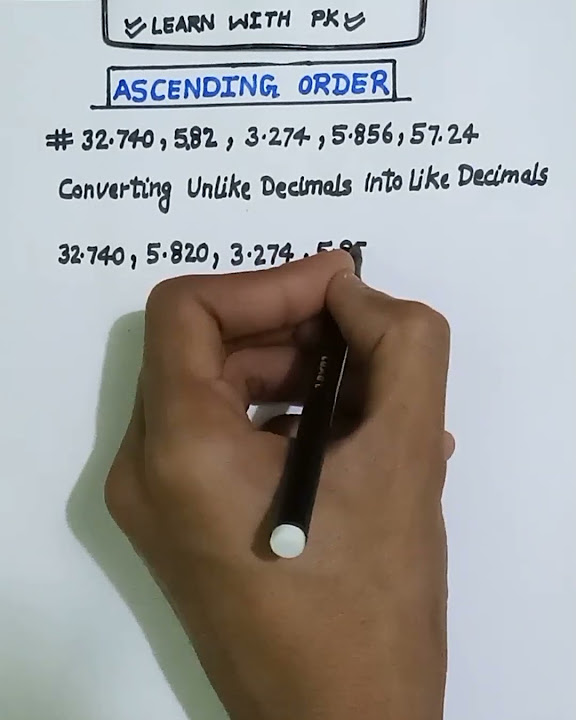 LEARN WITH PK
ASCENDING ORDER
# 32.740, 5.82, 3.274, 5.856, 57.24
Converting Unlike Decimals Into Like Decimals
32.740, 5.820, 3.274, 5.85